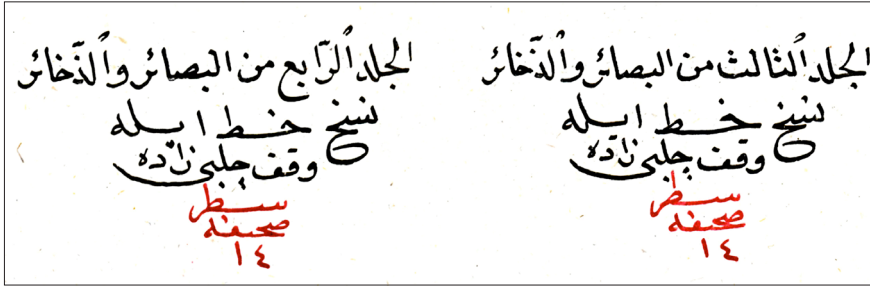 الجلد الثالث من البصائر والذخائر
نسخ خط ايله
وقف چلبی زاده
سطر
صحيفه
١٤
الجلد الرّابع من البصائر والذّخائر
نسخ خط ايله
وقف چلبی زاده
سطر
صحيفه
١٤